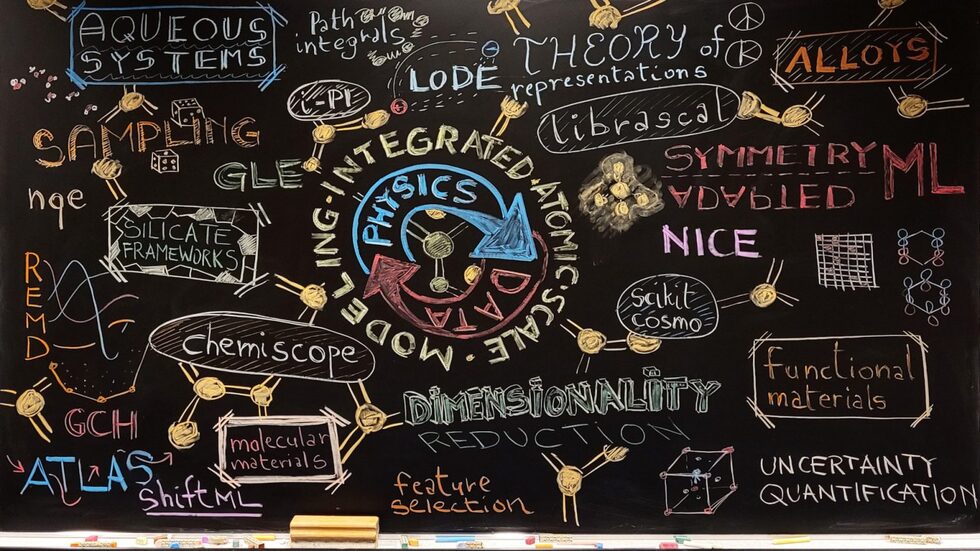 AQUEOUS
SYSTEMS
Path
integrals
LODE
THEORY of
representations
ALLOYS
i-PI
librascal
SAMPLING
GLE
nqe
SILICATE
FRAMEWORKS
INTEGRATED·ATOMIC·SCALE·MODELING·
PHYSICS
DATA
SYMMETRY
ADAPTED
ML
NICE
REMD
scikit
cosmo
chemiscope
GCH
molecular
materials
DIMENSIONALITY
REDUCTION
functional
materials
ATLAS
ShiftML
feature
selection
UNCERTAINTY
QUANTIFICATION